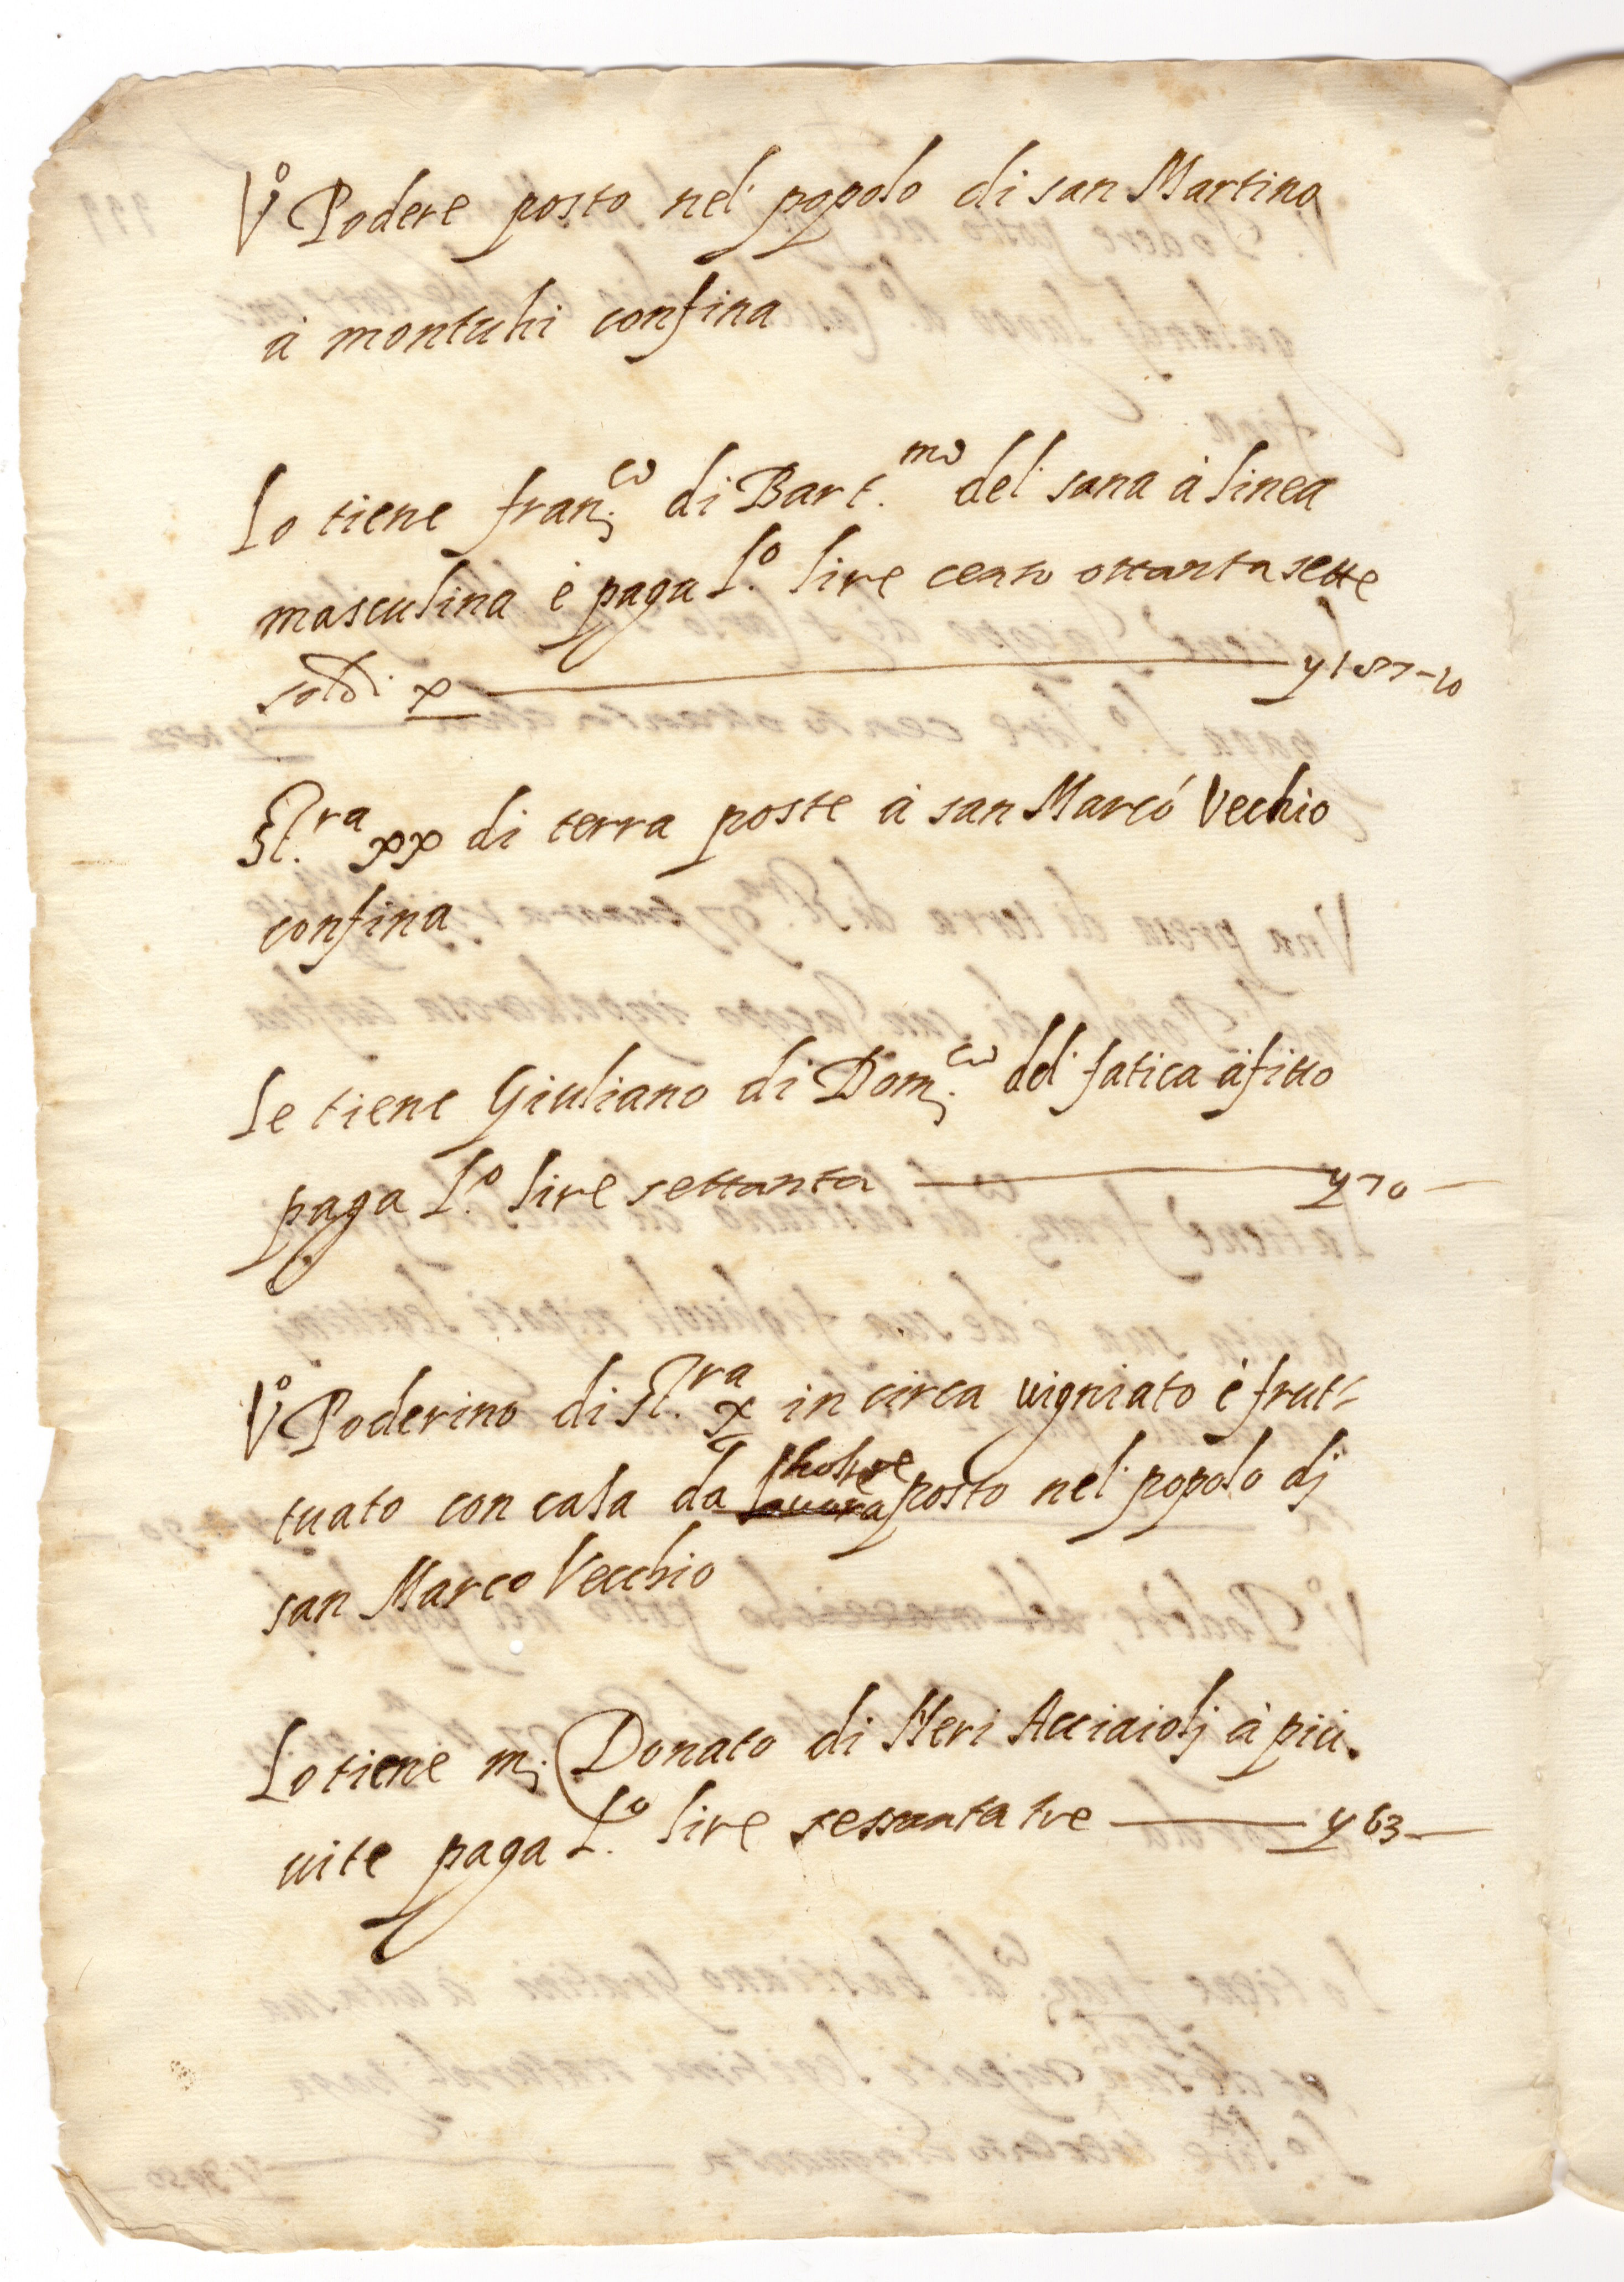 Vº Podere posto nel popolo di san Martino
à montuhi confina
Lo tiene franco di Bartmo del sana à linea
masculina è paga Lº lire cento ottanta sette
soldi x y 187-10
Stra xx di terra poste à san Marcó Vecchio
confina
Le tiene Giuliano di Domco del fatica à fitto
paga Lº lire settanta y 70 —
Vº Poderino di Stra x in circa vigniato è frut-
tuato con casa da hoste posto nel popolo dj
san Marco Vecchio
Lo tiene m. Donato di Neri Acciaiolj à più
vite paga Lº lire sessanta tre y 63 —